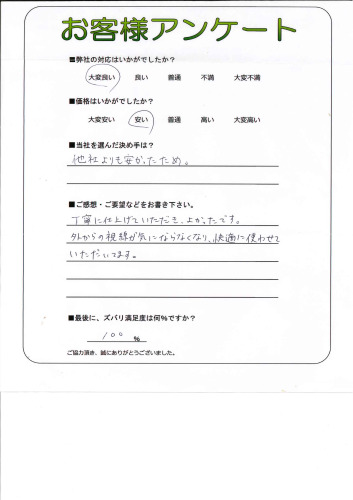 お客様アンケート
■弊社の対応はいかがでしたか？
大変良い 良い 普通 不満 大変不満
■価格はいかがでしたか？
大変安い 安い 普通 高い 大変高い
■当社を選んだ決め手は？
他社よりも安かったため。
■ご感想・ご要望などをお書き下さい。
丁寧に仕上げていただき、よかったです。
外からの視線が気にならなくなり、快適に使わせて
いただいてます。
■最後に、ズバリ満足度は何%ですか？
100 %
ご協力頂き、誠にありがとうございました。